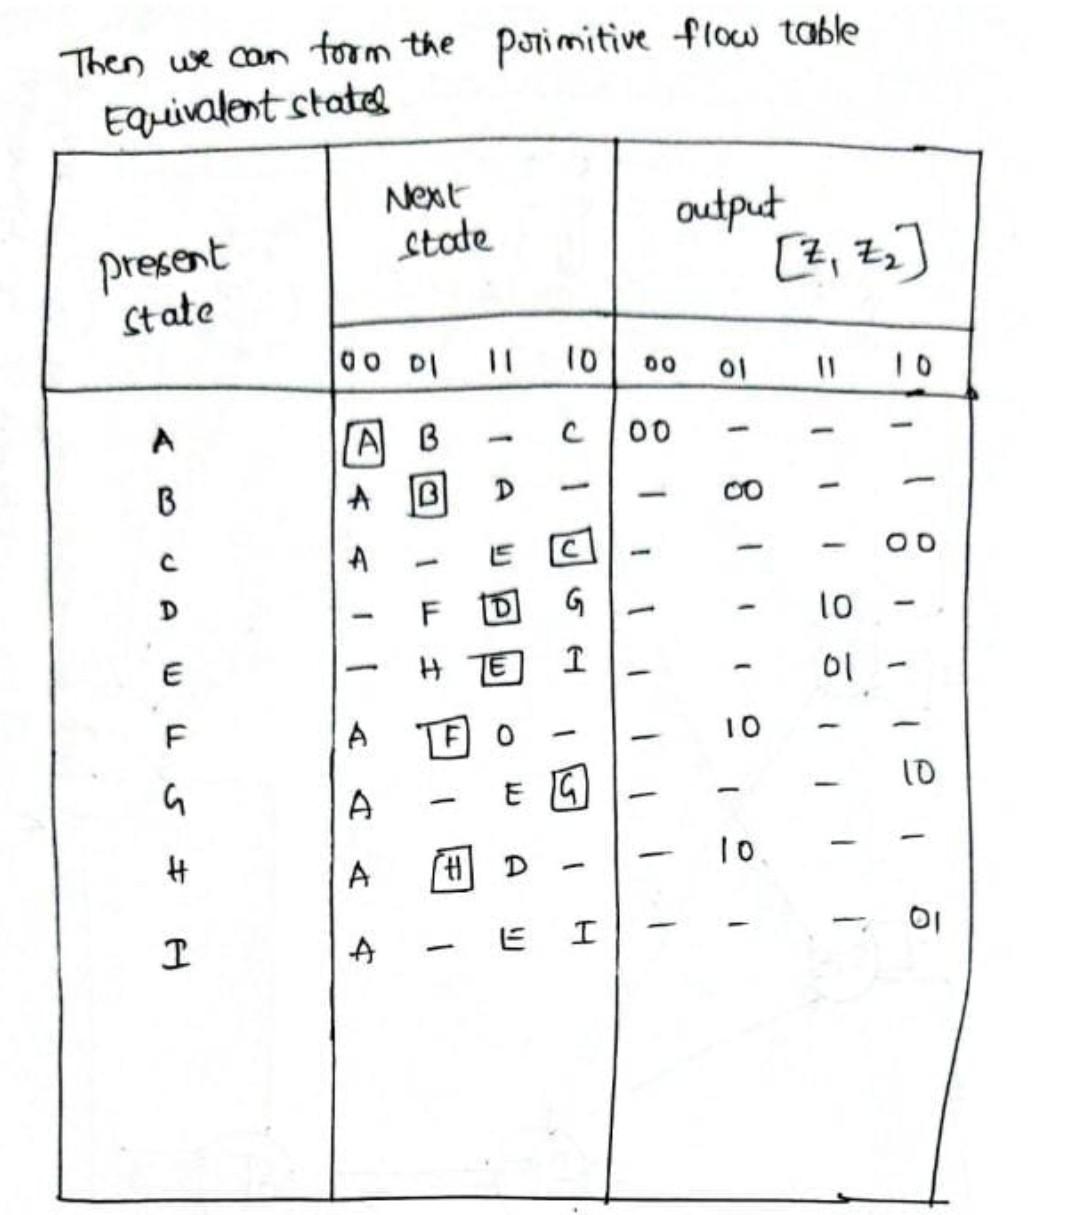 Then we can form the primitive flow table
Equivalent states
present state
Next state
output
[Z1 Z2]
00 01 11 10 00 01 11 10
A A B - C 00 - - -
B A B D - - 00 - -
C A - E C - - - 00
D - F D G - - 10 -
E - H E I - - 01 -
F A F O - - 10 - -
G A - E G - - - 10
H A H D - - 10 - -
I A - E I - - - 01